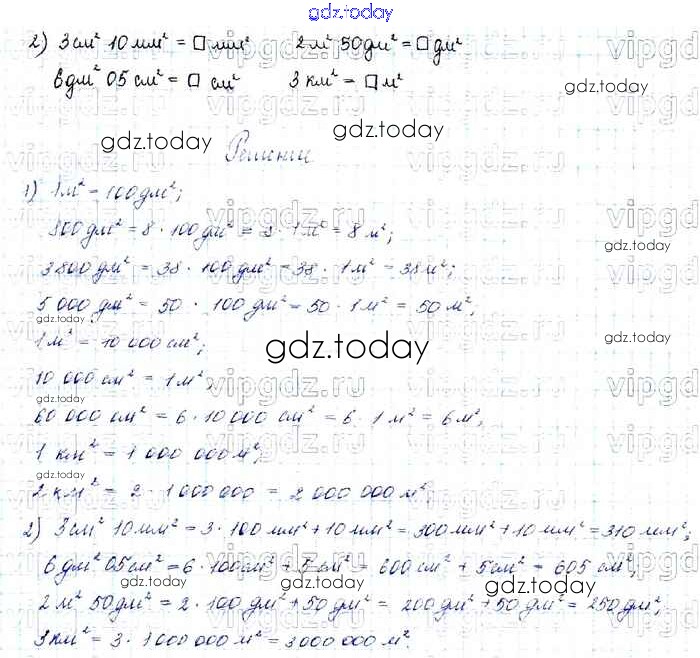 gdz.today
2) 3 см² 10 мм² = □ мм² 2 м² 50 дм² = □ дм²
6 дм² 05 см² = □ см² 3 км² = □ м²
gdz.today
gdz.today gdz.today
Решение
vipgdz.ru
1) 1 м² = 100 дм²;
800 дм² = 8 · 100 дм² = 8 · 1 м² = 8 м²;
gdz.today
3800 дм² = 38 · 100 дм² = 38 · 1 м² = 38 м²;
5 000 дм² = 50 · 100 дм² = 50 · 1 м² = 50 м²;
gdz.today
1 м² = 10 000 см²;
gdz.today
10 000 см² = 1 м²;
gdz.today
60 000 см² = 6 · 10 000 см² = 6 · 1 м² = 6 м²;
1 км² = 1 000 000 м²;
gdz.today
2 км² = 2 · 1 000 000 = 2 000 000 м²
2) 3 см² 10 мм² = 3 · 100 мм² + 10 мм² = 300 мм² + 10 мм² = 310 мм²;
6 дм² 05 см² = 6 · 100 см² + 5 см² = 600 см² + 5 см² = 605 см²;
gdz.today gdz.today gdz.today
2 м² 50 дм² = 2 · 100 дм² + 50 дм² = 200 дм² + 50 дм² = 250 дм²;
3 км² = 3 · 1 000 000 м² = 3 000 000 м².